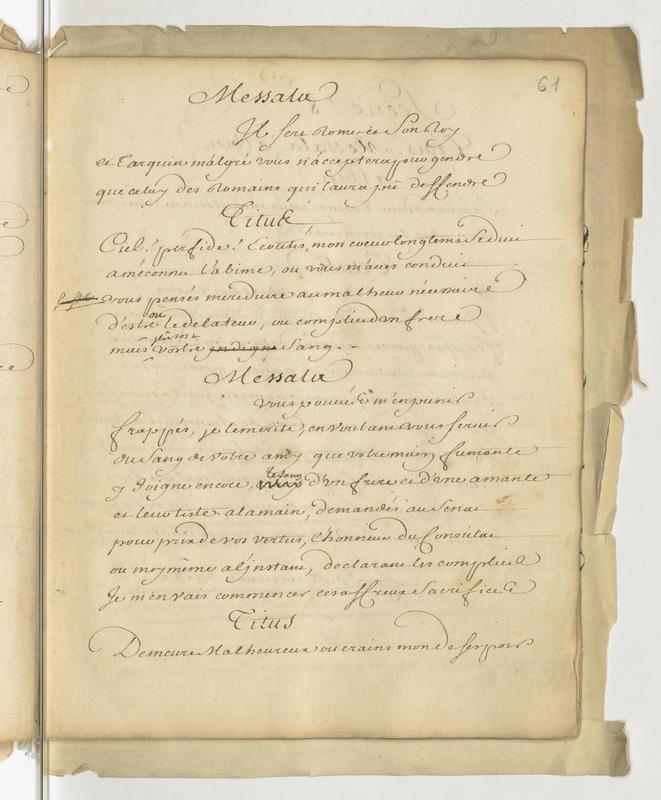 61
Messala
Il sert Rome et son Roy
et Tarquin malgré vous n'acceptera pour gendre
que celuy des Romains qui laura pû deffendre
Titus
Ciel! perfide! Ecoutés, mon coeur longtems seduit
a méconnu l'abime, ou vous m'avés conduit
vous pensés me reduire au malheur nécessaire
d'estre ou le delateur, ou complice d'un frere
mais plutost vostre indigne sang. -
Messala
vous pouvés m'en punir
frappés, je le merite, en voulant vous servir
du sang de votre amy que votre main fumante
y Joigne encore, le sang d'un frere et d'une amante
et leur teste a la main, demandés au Senat
pour prix de vos vertus, l'honneur du Consulat
ou moy même a l'instant, declarant les complices
Je m'en vais commencer ces affreux Sacrifices
Titus
Demeure Malheureux ou crains mon desespoir